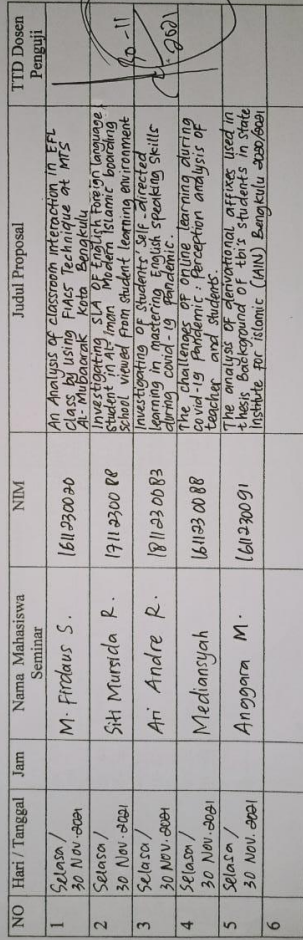 NO Hari / Tanggal Jam Nama Mahasiswa Seminar NIM Judul Proposal TTD Dosen Penguji
1 Selasa / 30 Nov. 2021 M. Firdaus S. 1611230020 An Analysis of classroom interaction in EFL
class by using FIACS Technique at MTS
AL-Mubaarak Kota Bengkulu
2 Selasa / 30 Nov. 2021 Siti Mursida R. 1711230088 Investigating SLA of English Foreign language
student in AL-Iman Modern Islamic boarding
school viewed from student learning environment
3 Selasa / 30 Nov. 2021 Ari Andre R. 1811230083 Investigating of Students' Self-directed
learning in mastering English speaking skills
during covid-19 Pandemic.
4 Selasa / 30 Nov. 2021 Mediansyah 1611230088 The challenges of online learning during
Covid-19 Pandemic: Perception analysis of
teacher and students.
5 Selasa / 30 Nov. 2021 Anggara M. 1611230091 The analysis of derivational affixes used in
thesis Background of tbi's students in state
institute for islamic (IAIN) Bengkulu 2020/2021
6
30-11
2021